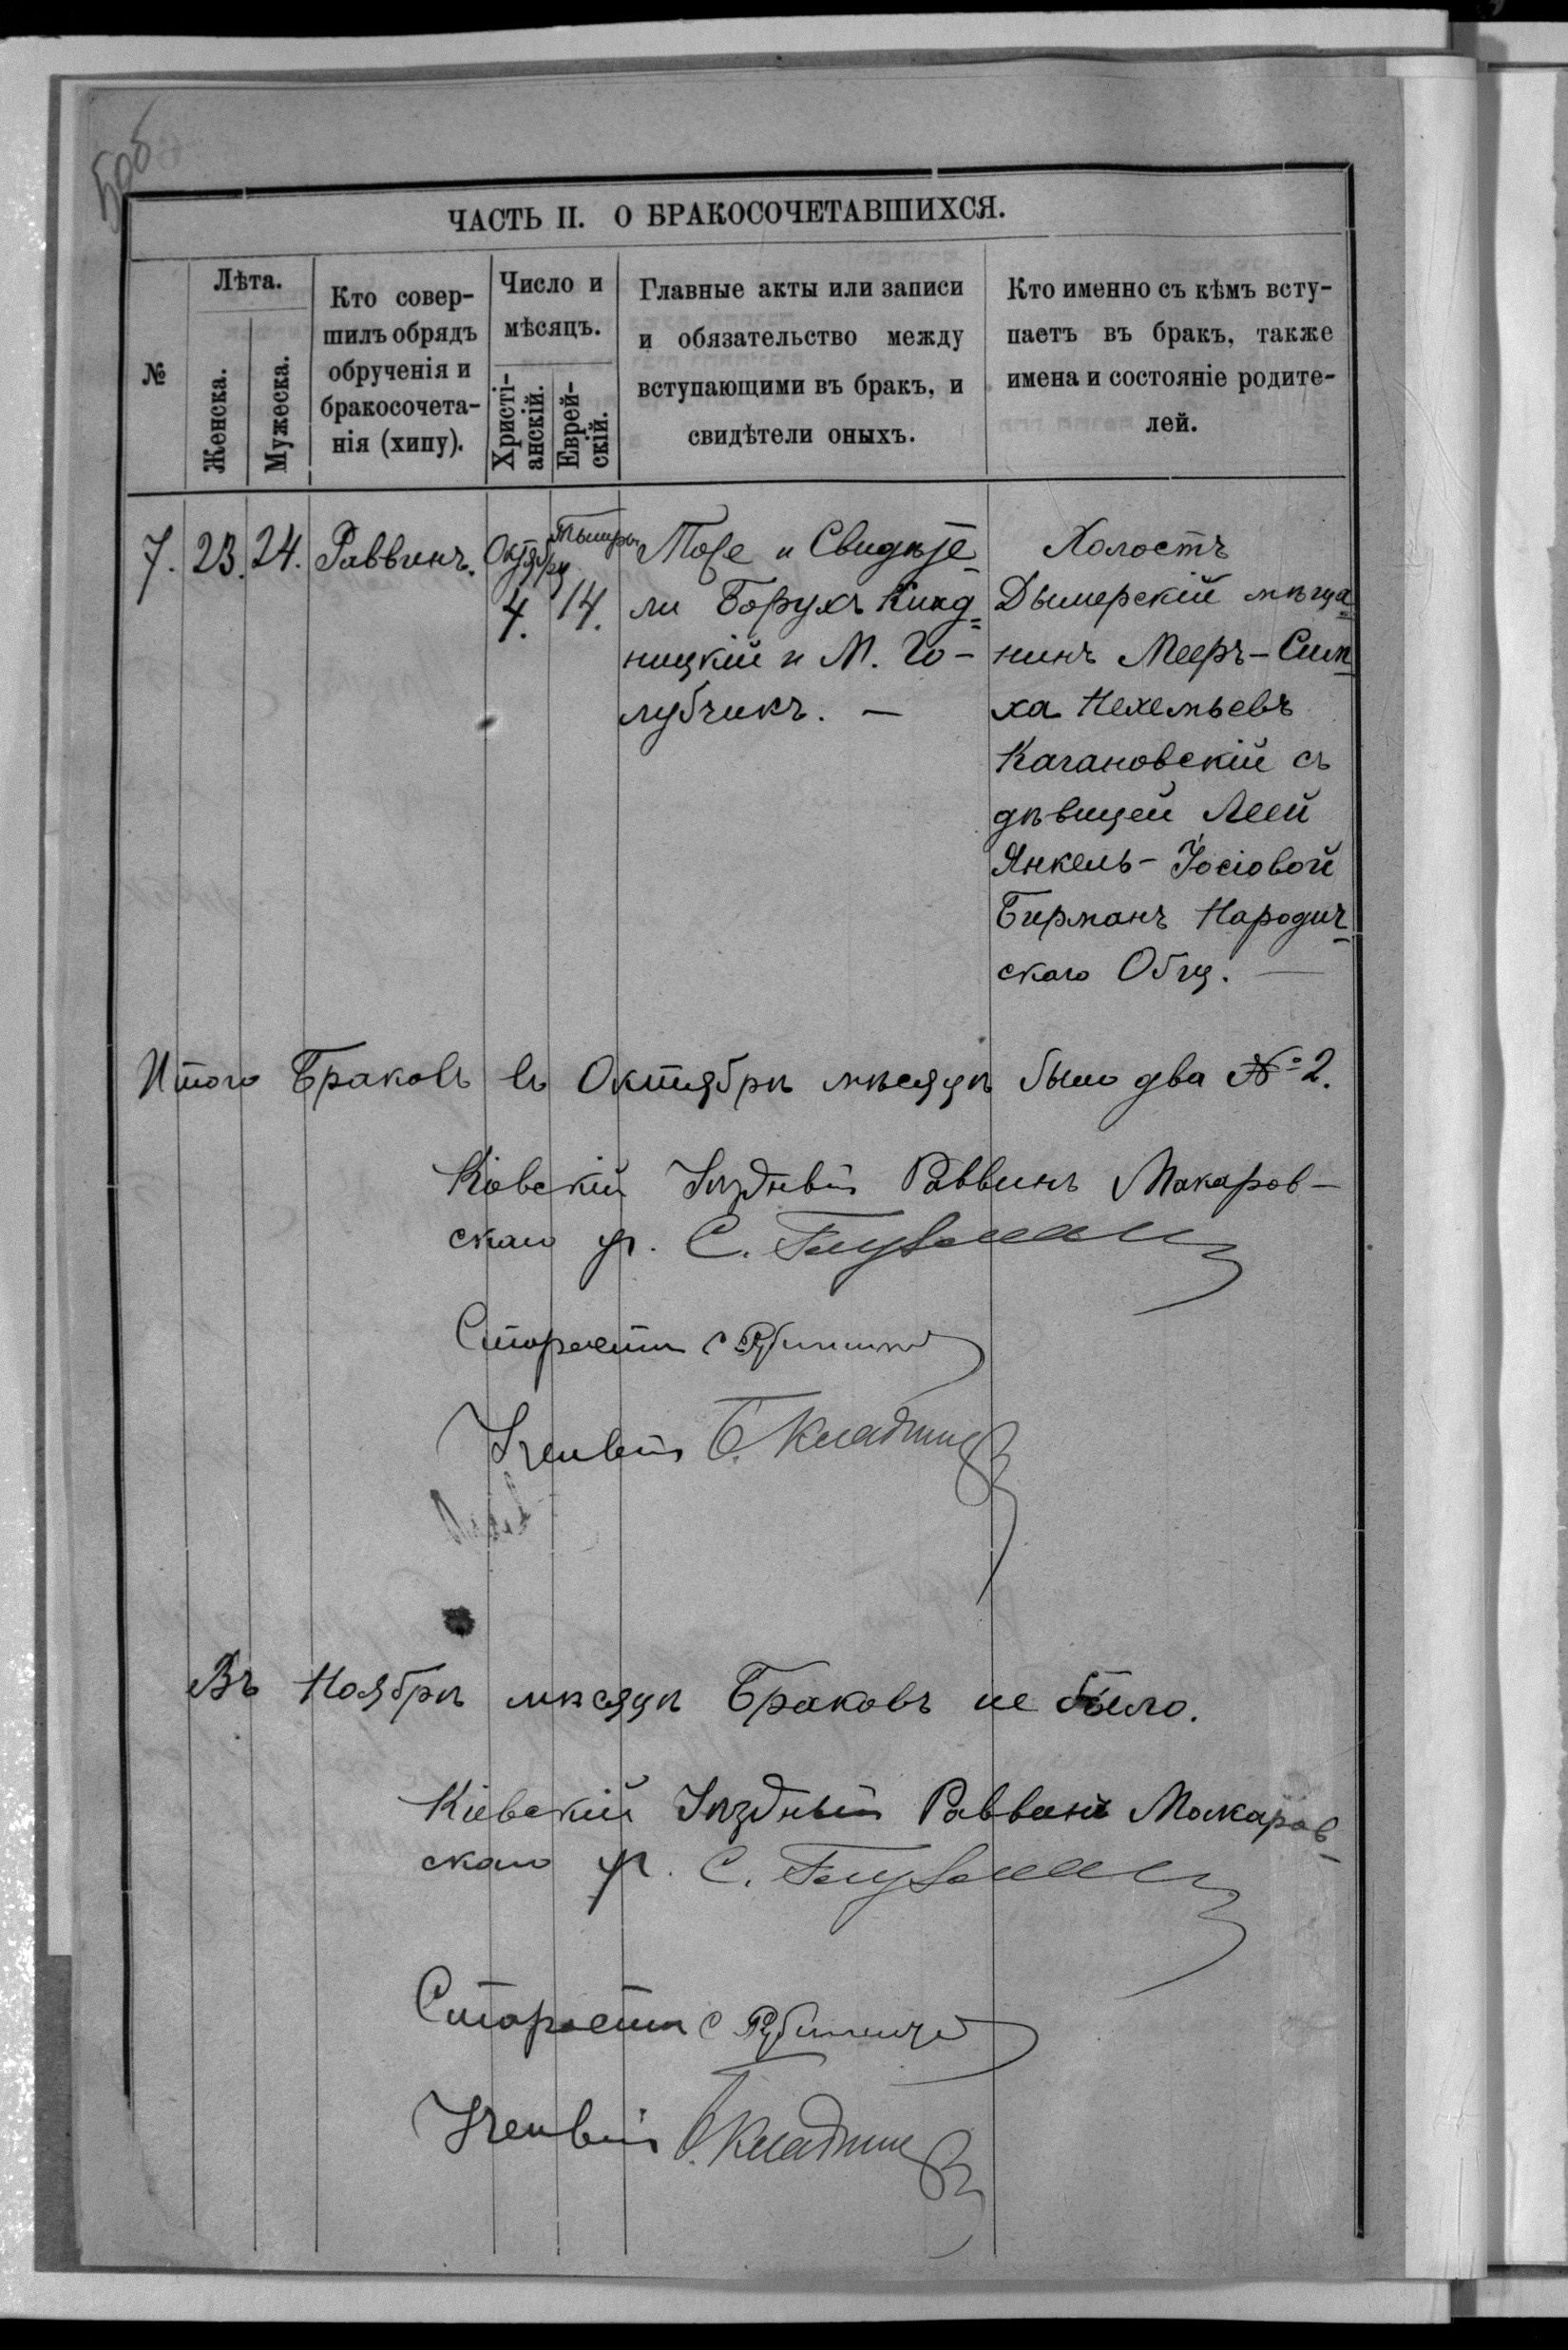 ЧАСТЬ II. О БРАКОСОЧЕТАВШИХСЯ.
№
Лѣта.
Женска.
Мужеска.
Кто совер-
шилъ обрядъ
обрученія и
бракосочета-
нія (хипу).
Число и
мѣсяцъ.
Христі-
анскій.
Еврей-
скій.
Главные акты или записи
и обязательство между
вступающими въ бракъ, и
свидѣтели оныхъ.
Кто именно съ кѣмъ всту-
паетъ въ бракъ, также
имена и состояніе родите-
лей.
7. 23. 24. Раввинъ. Октября 4. Тышри 14.
Тоже и Свидѣте-
ли Борухъ Клад=
ницкій и М. Го-
лубчикъ. —
Холостъ
Дымерскій мѣща=
нинъ Мееръ-Сим-
ха Нехемьевъ
Кагановскій съ
дѣвицей Леей
Янкель-Іосіовой
Бирманъ Народич-
скаго Общ. —
Итого Браковъ въ Октябрѣ мѣсяцѣ было два № 2.
Кіевскій Уѣздный Раввинъ Макаров-
скаго уч. С. Глузман
Староста С
Ученый Б. Кладниц
Въ Ноябрѣ мѣсяцѣ Браковъ не было.
Кіевскій Уѣздный Раввинъ Макаров-
скаго уч. С. Глузман
Староста С
Ученый Б. Кладниц